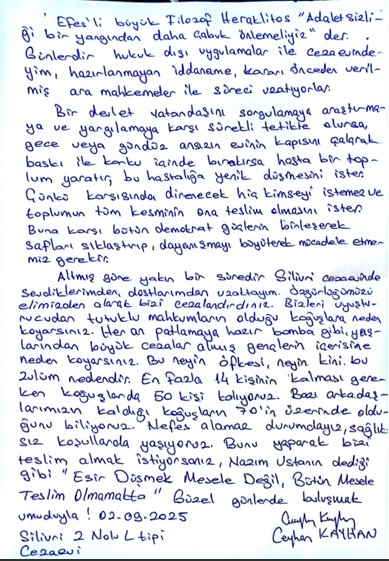 'Efes'li büyük Filozof Heraklitos "Adaletsizli-
ği bir yangından daha çabuk önlemeliyiz" der.
Günlerdir hukuk dışı uygulamalar ile cezaevinde-
yim, hazırlanmayan iddaname, kararı önceden veril-
miş ara mahkemeler ile süreci uzatıyorlar.
Bir devlet vatandaşını sorgulamaya araştırma-
ya ve yargılamaya karşı sürekli tetikte olursa,
gece veya gündüz ansızın evinin kapısını çalarak
baskı ile korku içinde bırakırsa hasta bir top-
lum yaratır, bu hastalığa yenik düşmesini ister.
Çünkü karşısında direnecek hiç kimseyi istemez ve
toplumun tüm kesminin ona teslim olmasını ister.
Buna karşı bütün demokrat güçlerin birleşerek
safları sıklaştırıp, dayanışmayı büyüterek mücadele etme-
miz gerekir.
Altmış güne yakın bir süredir Silivri cezaevinde
sevdiklerimden, dostlarımdan uzaktayım. Özgürlüğümüzü
elimizden alarak bizi cezalandırdınız. Bizleri uyuştu-
rucudan tutuklu mahkumların olduğu koğuşlara neden
koyarsınız. Her an patlamaya hazır bomba gibi, yaş-
larından büyük cezalar almış gençlerin içerisine
neden koyarsınız. Bu neyin öfkesi, neyin kini. bu
zulüm nedendir. En fazla 14 kişinin kalması gere-
ken koğuşlarda 50 kişi kalıyoruz. Bazı arkadaş-
larımızın kaldığı koğuşların 70'in üzerinde oldu-
ğunu biliyoruz. Nefes alamaz durumdayız, sağlık-
sız koşullarda yaşıyoruz. Bunu yaparak bizi
teslim almak istiyorsanız, Nazım Ustanın dediği
gibi "Esir Düşmek Mesele Değil, Bütün Mesele
Teslim Olmamakta" Güzel günlerde buluşmak
umuduyla! 02-09-2025
Silivri 2 Nolu L tipi
Cezaevi
Ceyhan KAYHAN